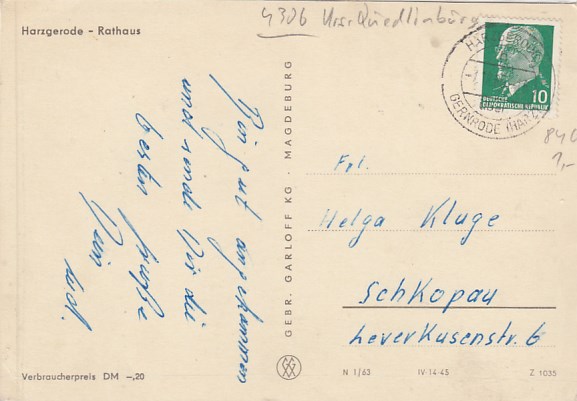 4306 Krs. Quedlinburg
Harzgerode - Rathaus
HARZGERODE
GERNRODE (HARZ)
10
DEUTSCHE
DEMOKRATISCHE REPUBLIK
840
1,-
Bin gut angekommen
und sende Dir die
besten Grüße
Dein
GEBR. GARLOFF KG · MAGDEBURG
Frl.
Helga Kluge
Schkopau
Leverkusenstr. 6
Verbraucherpreis DM –,20
N 1/63
IV-14-45
Z 1035